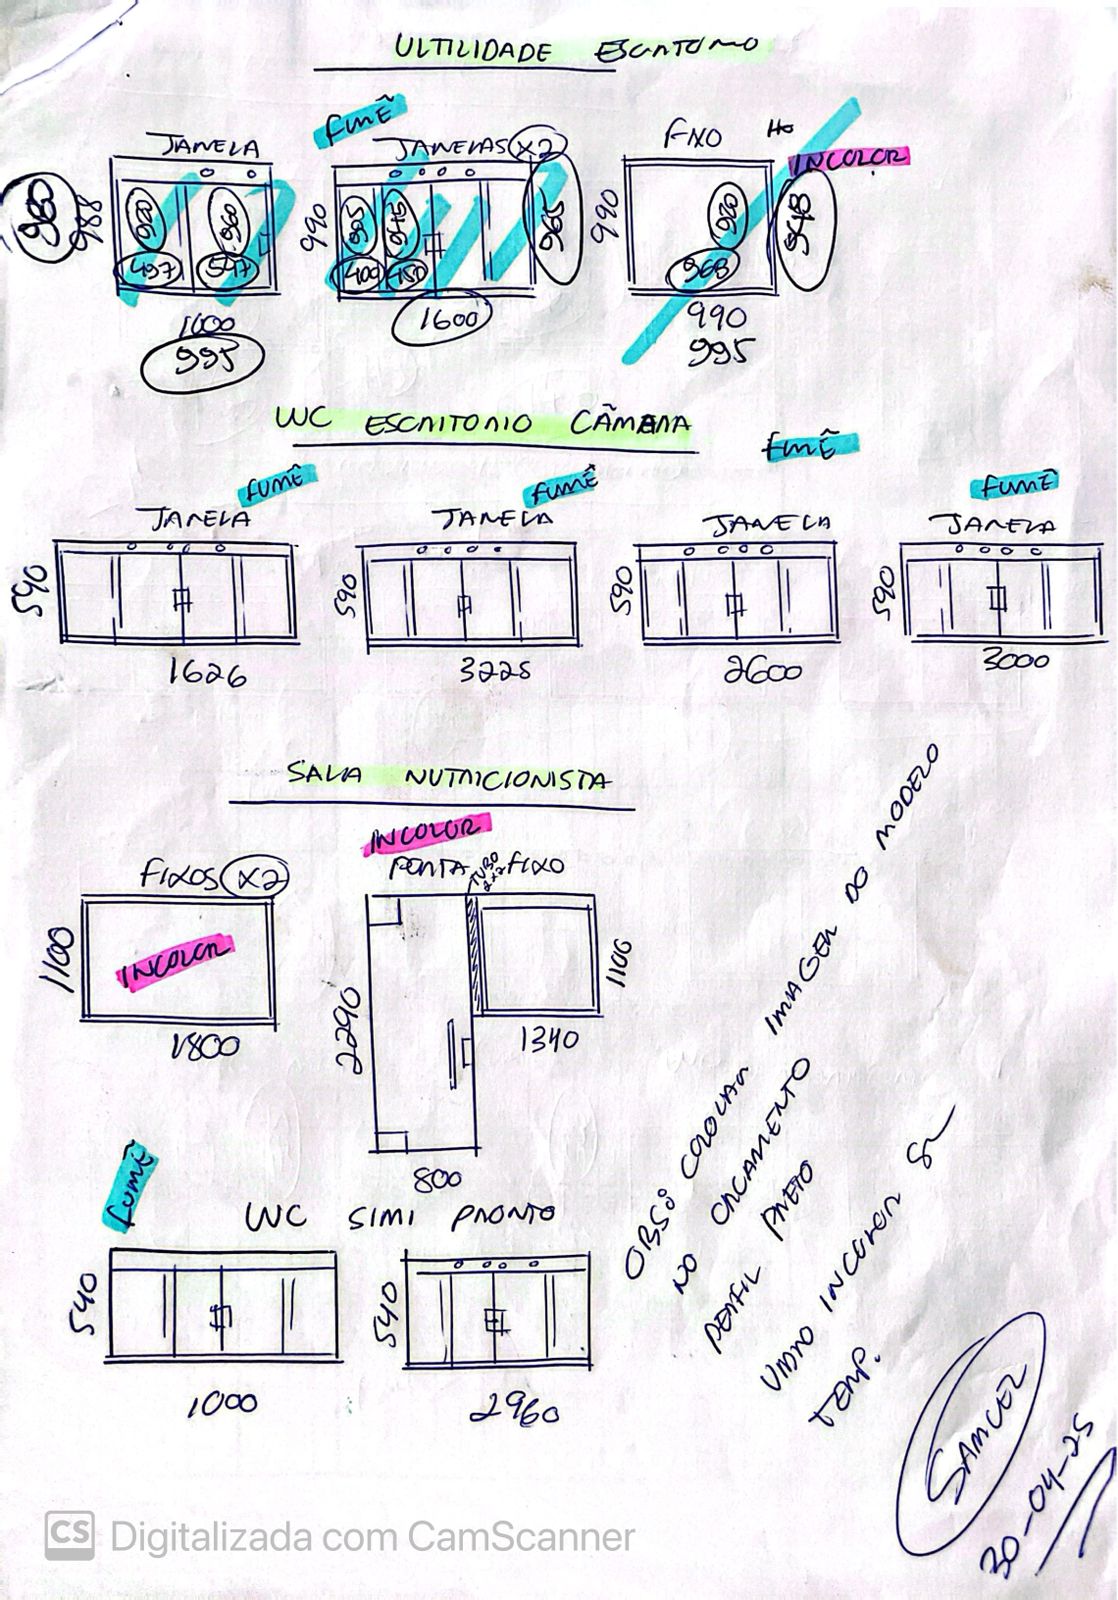 ULTILIDADE ESCRITORIO
FUMÊ
JANELA
JANELAS X2
FIXO
INCOLOR
980
988
920
960
497
547
1000
995
990
905
945
400
450
965
1600
990
920
968
948
990
995
WC ESCRITORIO CÂMARA
FUMÊ
FUMÊ
FUMÊ
FUMÊ
JANELA
JANELA
JANELA
JANELA
590
590
590
590
1626
3225
2600
3000
SALA NUTRICIONISTA
INCOLOR
FIXOS X2
PORTA
TUBO 2x2
FIXO
1100
INCOLOR
1800
2290
800
1100
1340
FUMÊ
WC SIMI PRONTO
540
1000
540
2960
OBS: COLOCAR IMAGEM DO MODELO
NO ORCAMENTO
PERFIL PRETO
VIDRO INCOLOR
TEMP.
SAMUEL
30-04-25
CS Digitalizada com CamScanner